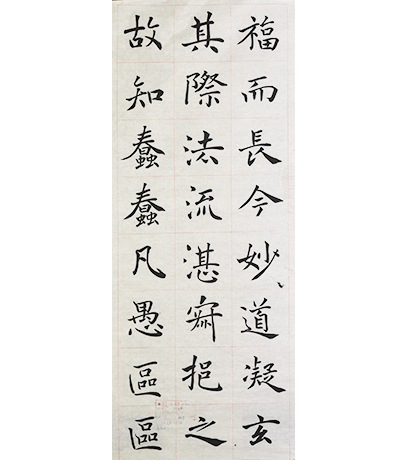 福而長今妙道凝玄
其際法流湛寂挹之
故知蠢蠢凡愚區區